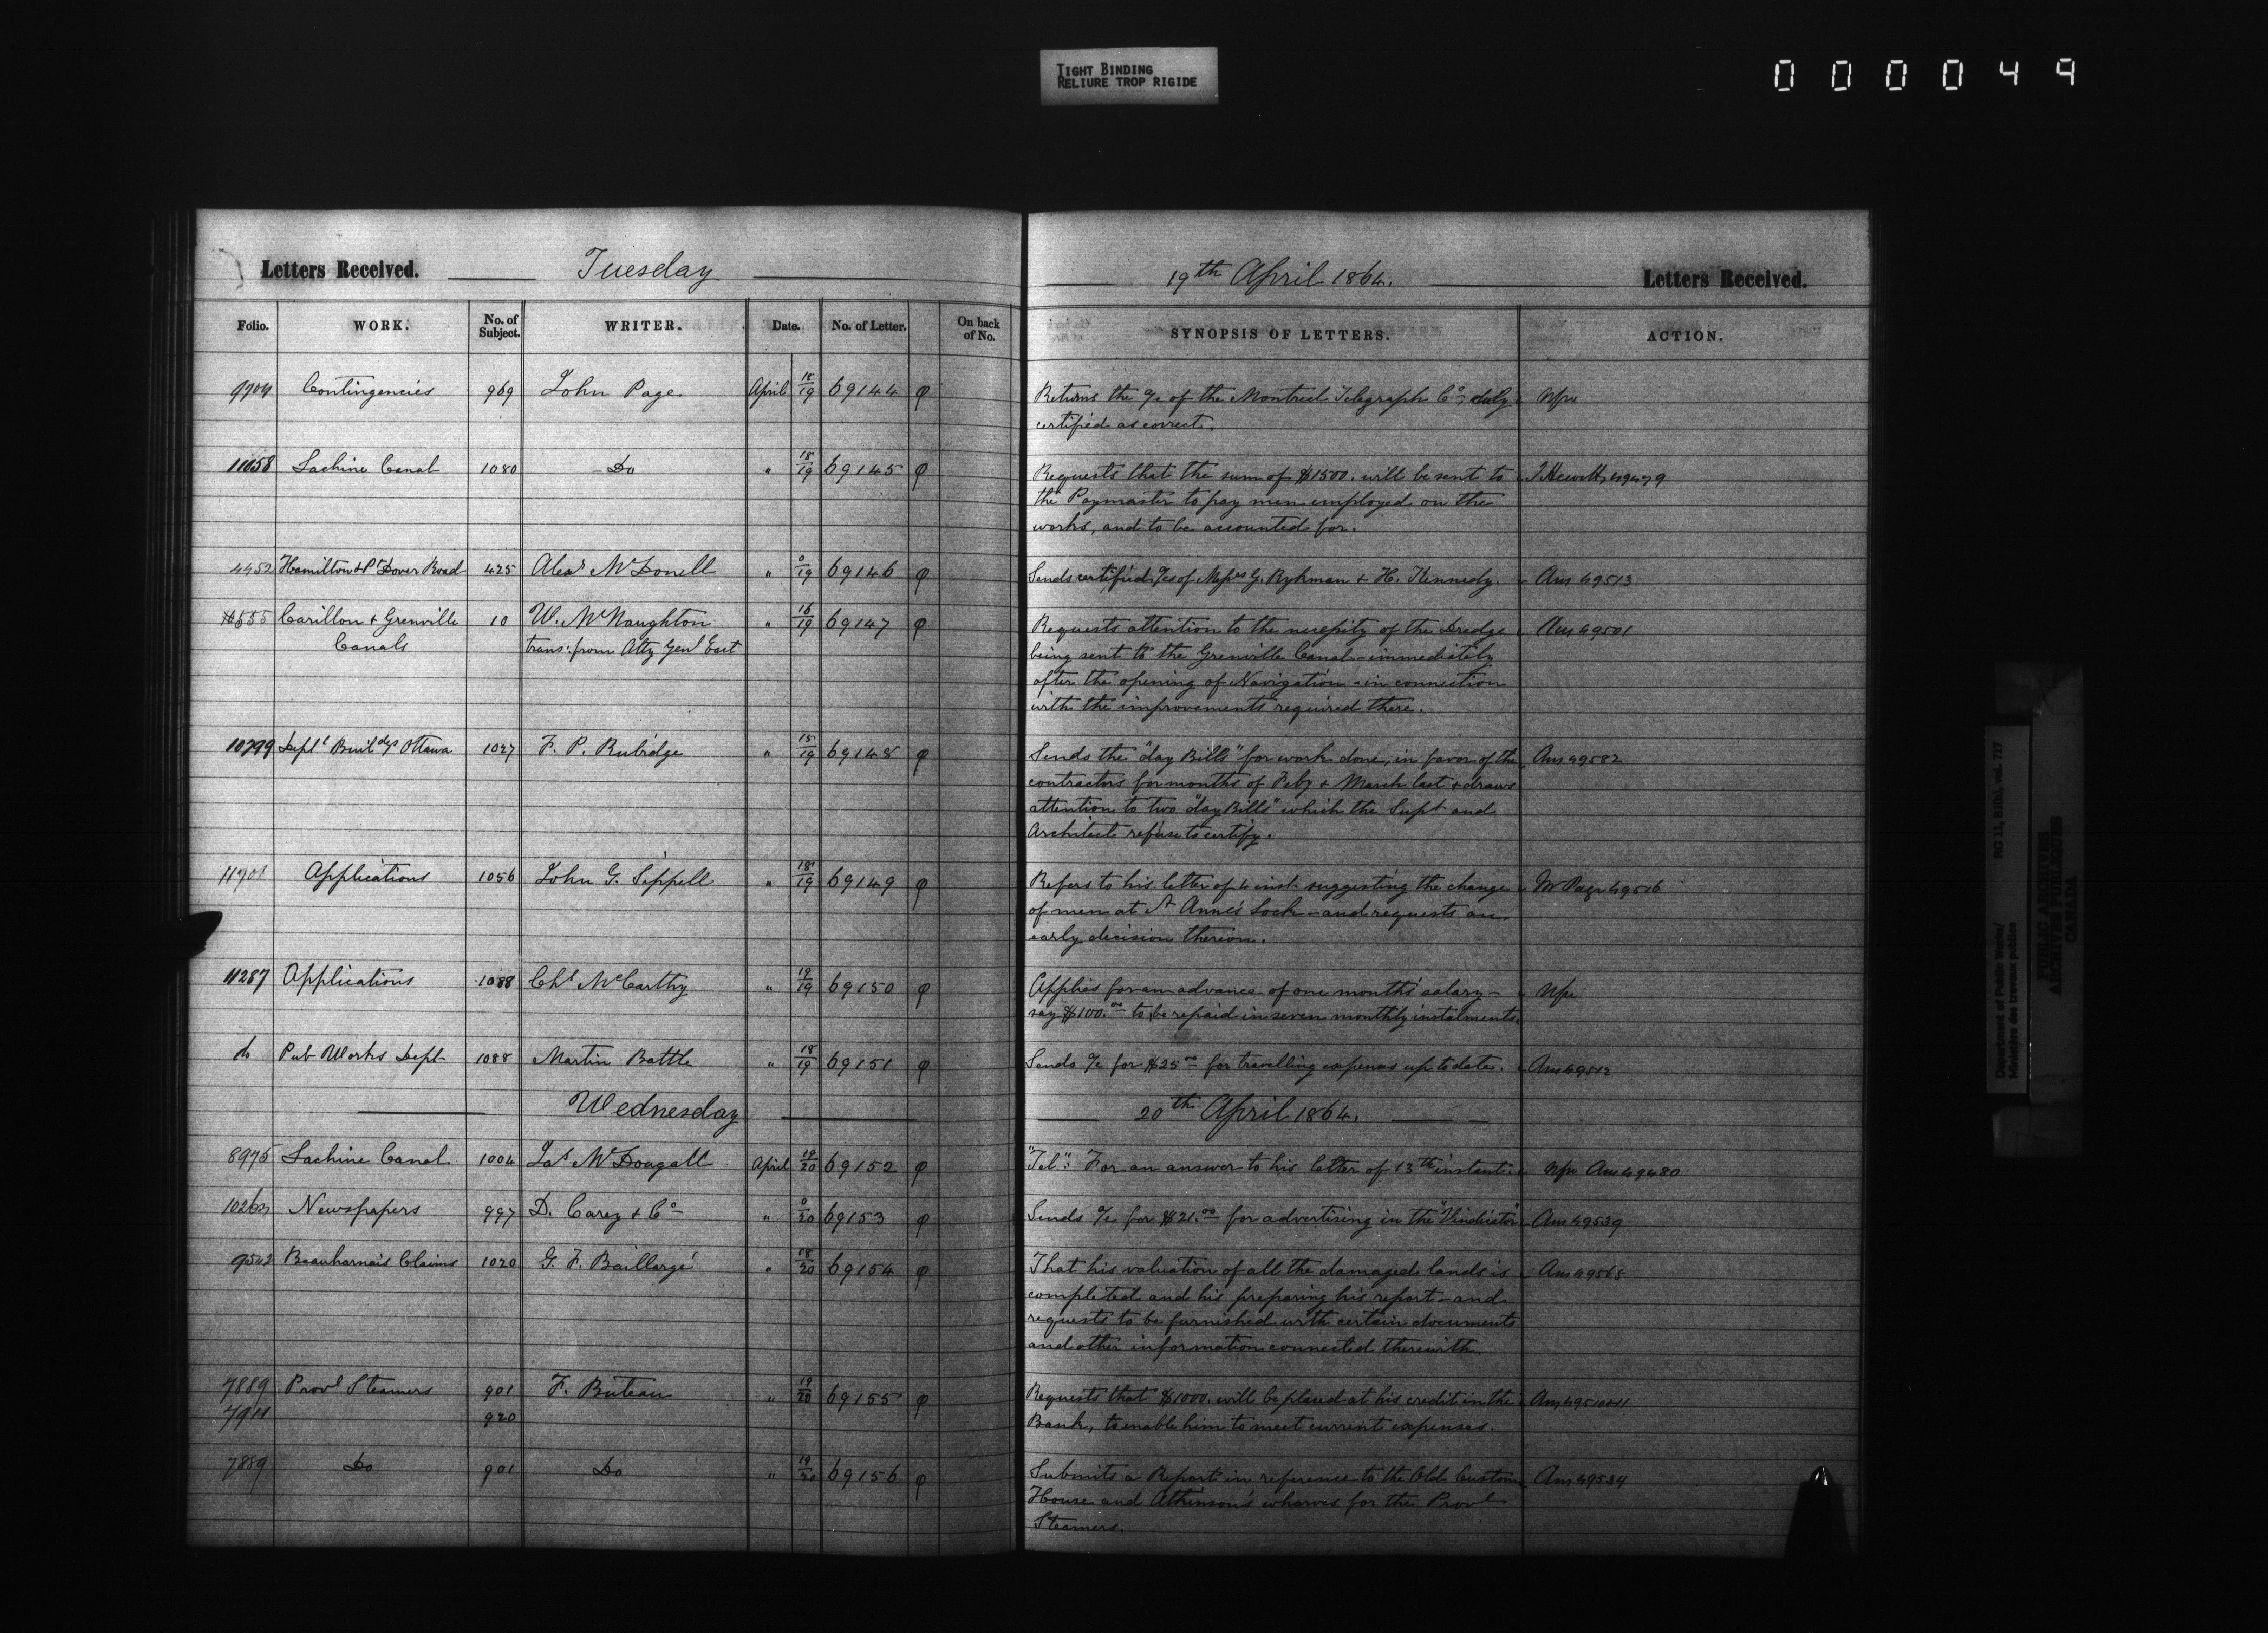 TIGHT BINDING
RELIURE TROP RIGIDE
000049
Letters Received. Tuesday 19th April 1864. Letters Received.
Folio. WORK. No. of Subject. WRITER. Date. No. of Letter. On back of No. SYNOPSIS OF LETTERS. ACTION.
Contingencies 969 John Page April 18/19 69144 φ Returns the a/c of the Montreal Telegraph Co, duly
certified as correct.
11058 Lachine Canal 1080 Do " 18/19 69145 φ Requests that the sum of $1500. will be sent to
the Paymaster to pay men employed on the
works, and to be accounted for.
4452 Hamilton & Pt Dover Road 425 Alexr McDonell " 0/19 69146 φ Sends certified a/cs of Messrs G. Rykman & H. Kennedy. Ans 49513
Carillon & Grenville 10 W. McNaughton " 16/19 69147 φ Requests attention to the necessity of the Dredge Ans 49501
Canals trans: from Atty Genl East being sent to the Grenville Canal - immediately
after the opening of Navigation - in connection
with the improvements required there.
10799 Deptl Buildgs Ottawa 1027 F. P. Rubidge " 15/19 69148 φ Sends the "day Bills" for work done, in favor of the Ans 49582
contractors for months of Feby & March last & draws
attention to two "day Bills" which the Supt and
Architect refuse to certify.
11701 Applications 1056 John G. Sippell " 18/19 69149 φ Refers to his letter of 4 inst suggesting the change Mr Page 49516
of men at St Anne's Lock - and requests an
early decision thereon.
11287 Applications 1088 Chs McCarthy " 19/19 69150 φ Applies for an advance of one months' salary -
say $100.00 to be repaid in seven monthly instalments.
do Pub Works Dept 1088 Martin Battle " 18/19 69151 φ Sends a/c for $25.00 for travelling expenses up to date. Ans 49512
Wednesday 20th April 1864.
8975 Lachine Canal 1004 Jas McDougall April 19/20 69152 φ "Tel": For an answer to his letter of 13th instant. Ans 49480
Newspapers 997 D. Carey & Co " 0/20 69153 φ Sends a/c for $21.00 for advertising in the "Vindicator" Ans 49539
9542 Beauharnais Claims 1020 G. F. Baillargé " 18/20 69154 φ That his valuation of all the damaged lands is Ans 49565
completed and his preparing his report - and
requests to be furnished with certain documents
and other information connected therewith.
7889 Provl Steamers 901 F. Buteau " 19/20 69155 φ Requests that $1000. will be placed at his credit in the
7911 920 Bank, to enable him to meet current expenses.
7889 Do 901 Do " 19/20 69156 φ Submits a Report in reference to the Old Custom Ans 49534
House and Atkinson's wharves for the Provl
Steamers.
Department of Public Works/
Ministère des travaux publics
RG 11, B1(b), vol. 717
PUBLIC ARCHIVES
ARCHIVES PUBLIQUES
CANADA